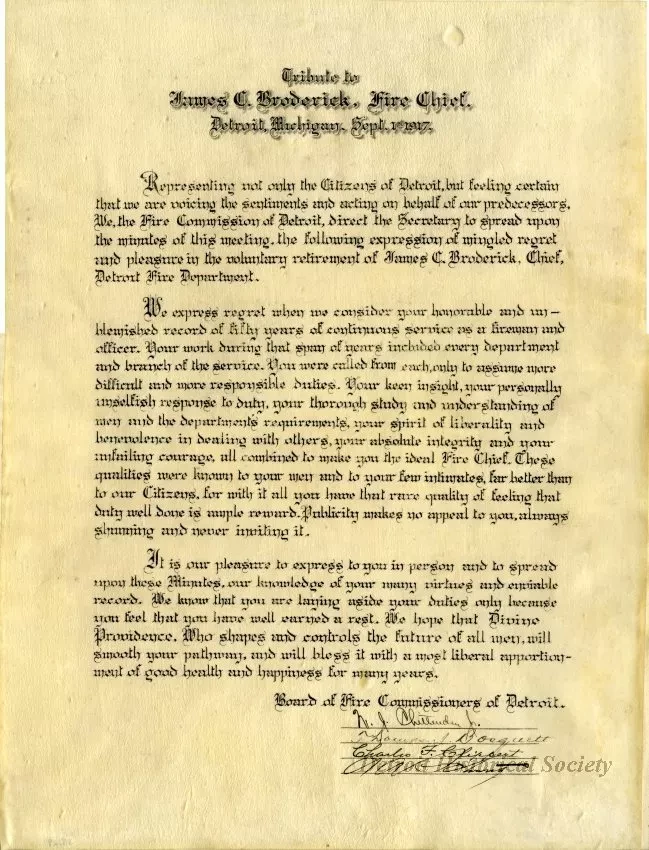 Tribute to
James C. Broderick, Fire Chief.
Detroit, Michigan. Sept. 1st 1917.
Representing not only the Citizens of Detroit, but feeling certain
that we are voicing the sentiments and acting on behalf of our predecessors.
We, the Fire Commission of Detroit, direct the Secretary to spread upon
the minutes of this meeting, the following expression of mingled regret
and pleasure in the voluntary retirement of James C. Broderick, Chief,
Detroit Fire Department.
We express regret when we consider your honorable and un-
blemished record of fifty years of continuous service as a fireman and
officer. Your work during that span of years included every department
and branch of the service. You were called from each, only to assume more
difficult and more responsible duties. Your keen insight, your personally
unselfish response to duty, your thorough study and understanding of
men and the department's requirements, your spirit of liberality and
benevolence in dealing with others, your absolute integrity and your
unfailing courage, all combined to make you the ideal Fire Chief. These
qualities were known to your men and to your few intimates, far better than
to our Citizens, for with it all you have that rare quality of feeling that
duty well done is ample reward. Publicity makes no appeal to you, always
shunning and never inviting it.
It is our pleasure to express to you in person and to spread
upon these Minutes, our knowledge of your many virtues and enviable
record. We know that you are laying aside your duties only because
you feel that you have well earned a rest. We hope that Divine
Providence, Who shapes and controls the future of all men, will
smooth your pathway, and will bless it with a most liberal apportion-
ment of good health and happiness for many years.
Board of Fire Commissioners of Detroit.
W. J. Chittenden Jr.
Thomas
Charles F.
Historical Society